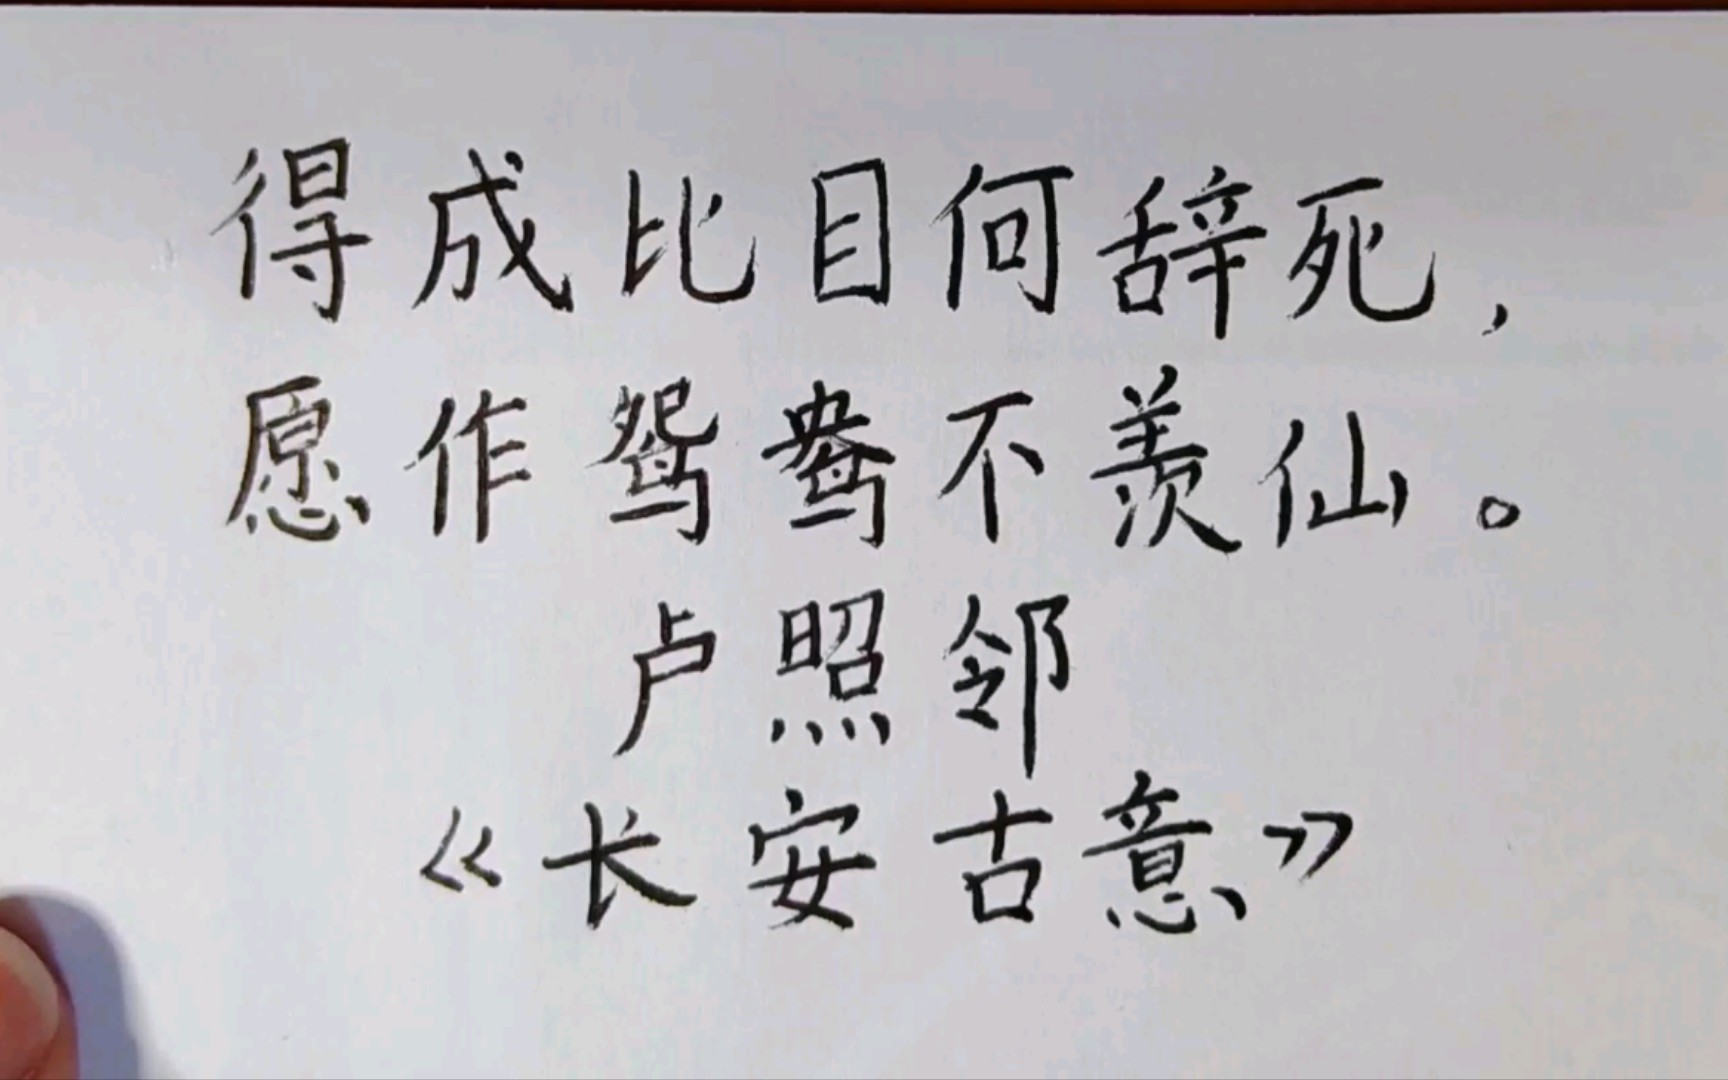 得成比目何辞死，
愿作鸳鸯不羡仙。
卢照邻
《长安古意》